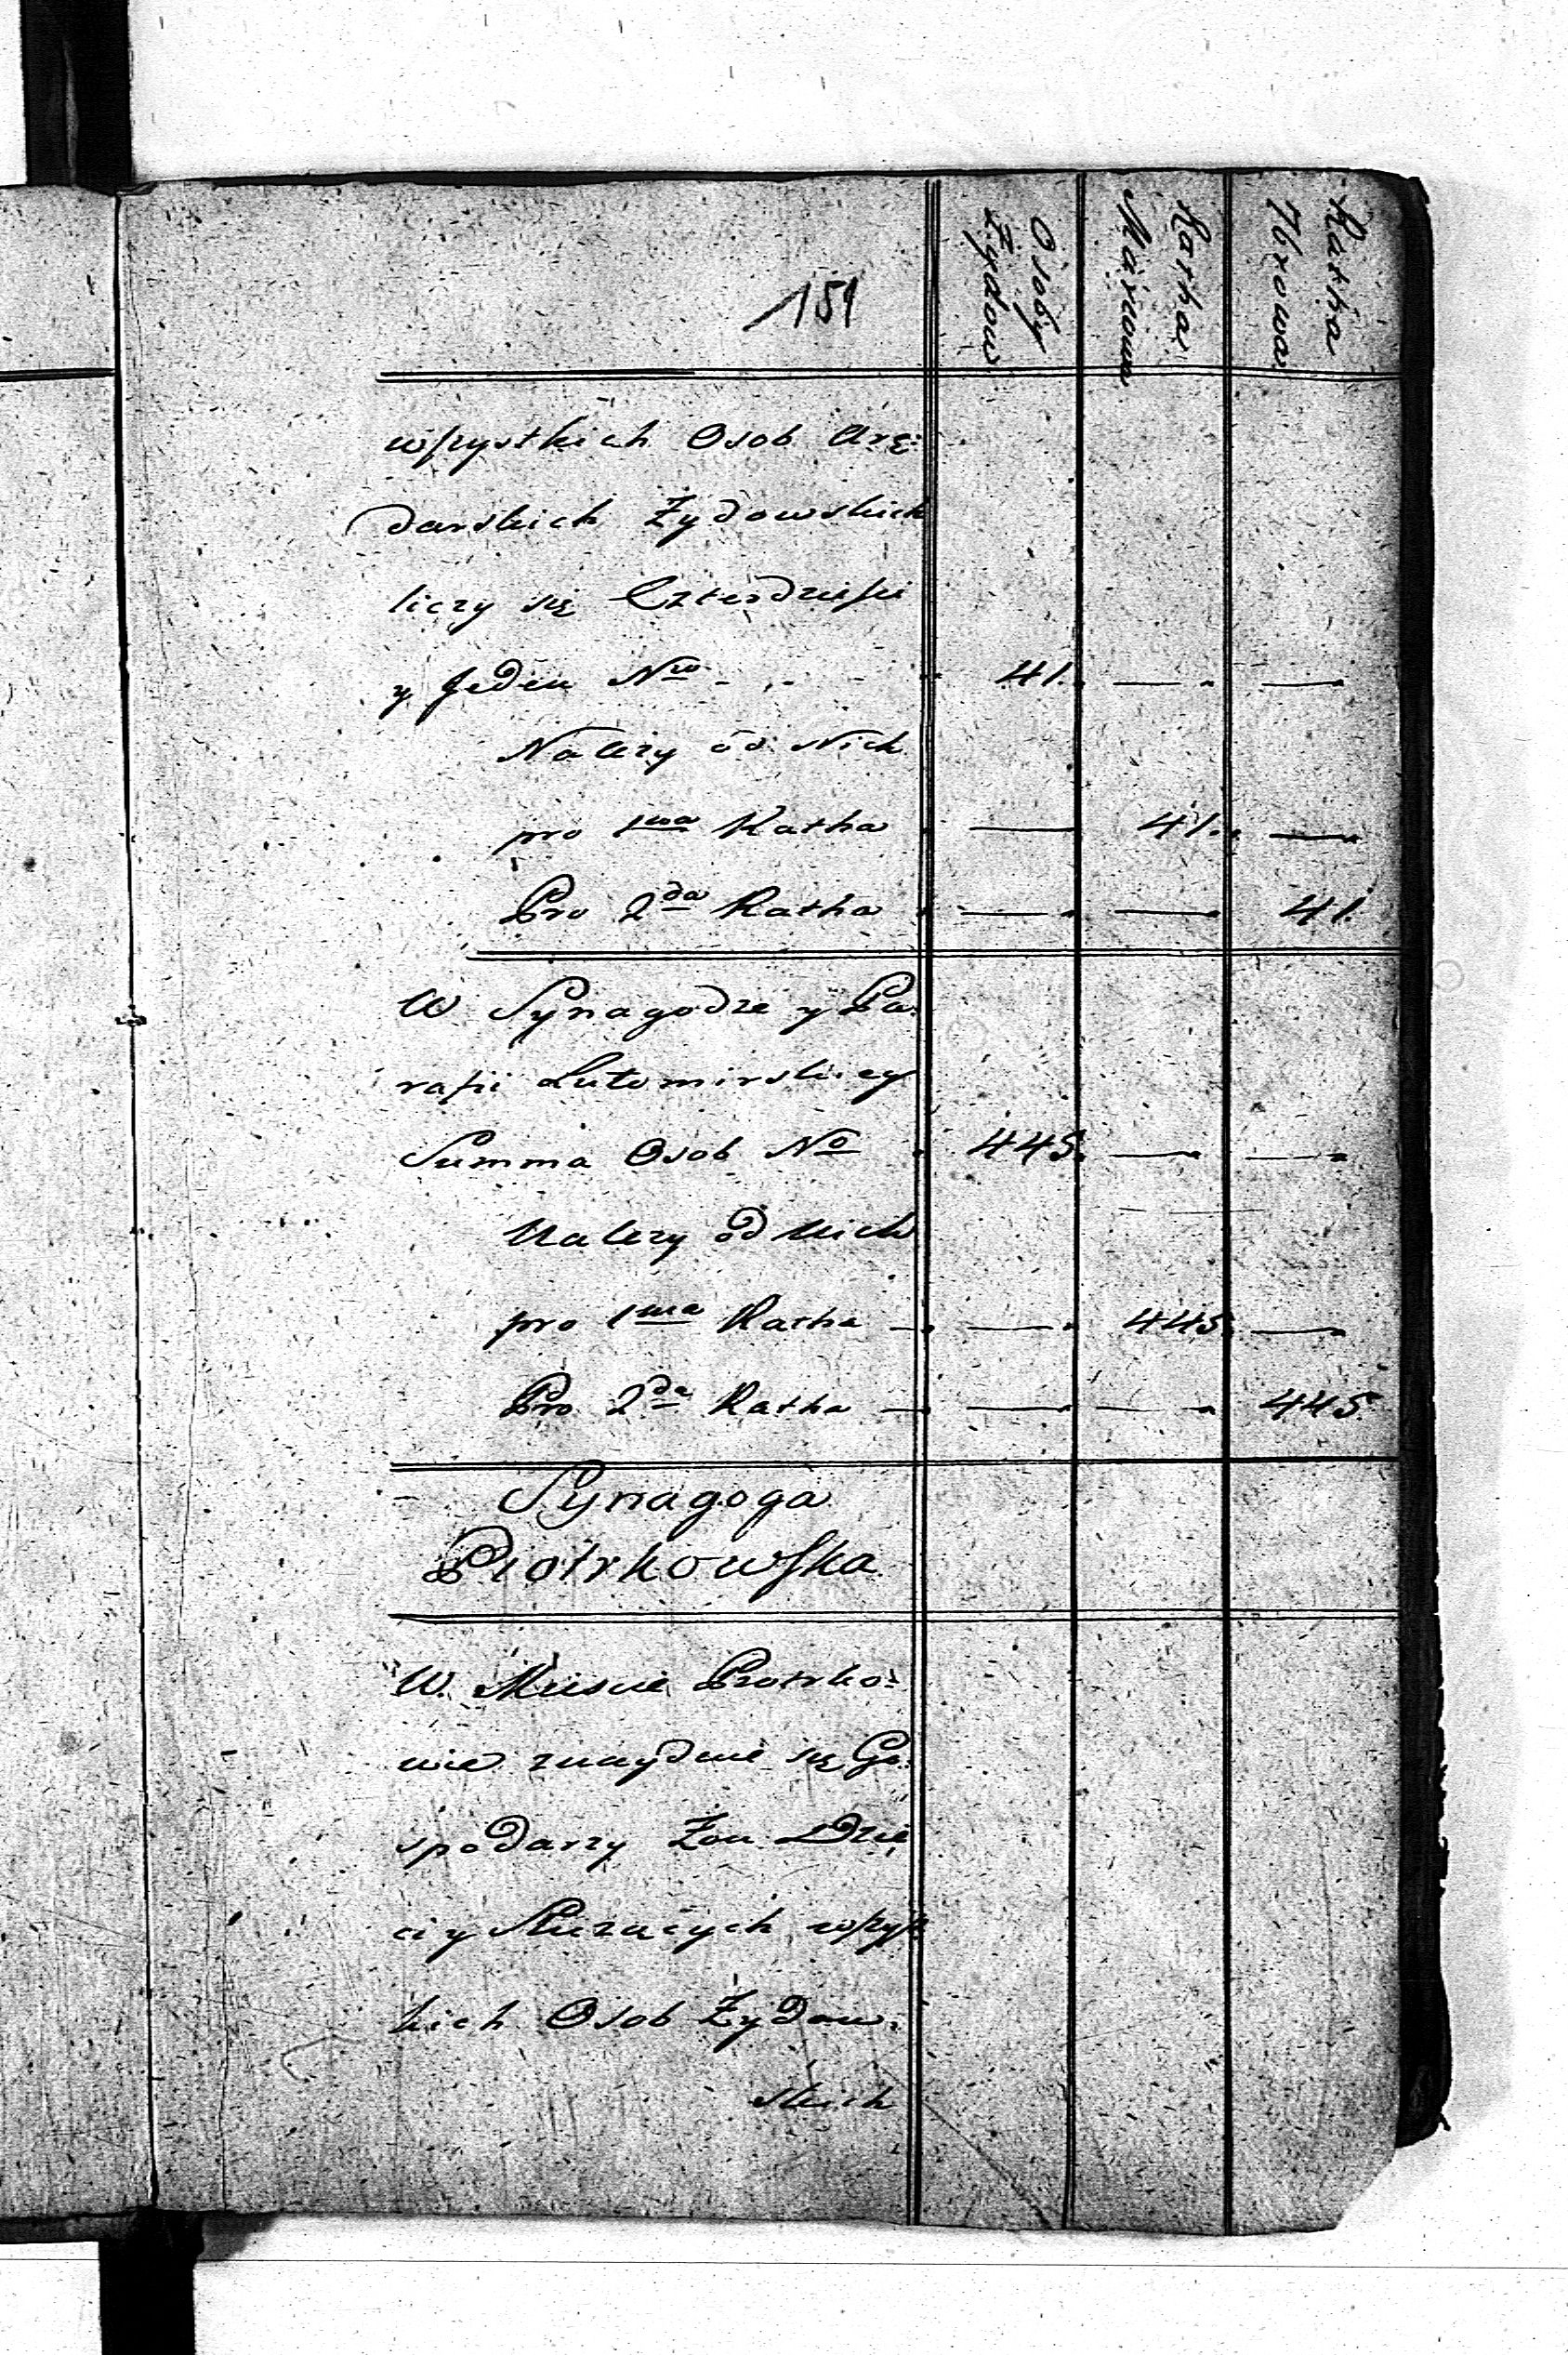 151
Osoby Zydow
Ratha Marcowa
Ratha 7browa
wszystkich Osob Arę:
darskich Żydowskich
liczy się Czterdzieści
y Jeden Nro - - - 41. — —
Nalezy od Nich
pro 1ma Ratha — 41. —
Pro 2da Ratha — — 41.
W Synagodze y Pa:
rafii Lutomirskiey
Summa Osob No 445. — —
Nalezy od Nich
pro 1ma Ratha — — 445. —
Pro 2da Ratha — — — 445
Synagoga
Piotrkowska
W. Miescie Piotrko:
wie znayduie się Go:
spodarzy Żon Dzie
ci y Służących wszyst
kich Osob Żydow:
skich